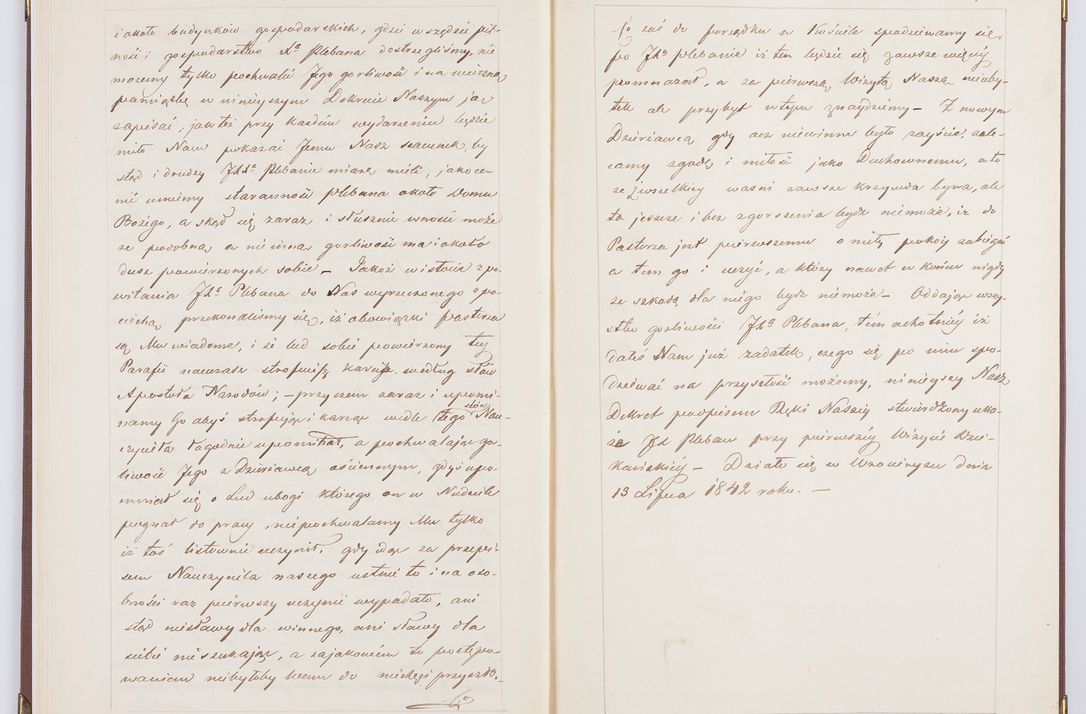 i około budynków gospodarskich, gdzie wszędzie pil-
ność i gospodarstwo Xa Plebana dostrzegliśmy, nie
możemy tylko pochwalić Jego gorliwość i na wieczną
pamiątkę w ninieyszym Dekrecie Naszym ją
zapisać, jak też przy każdém wydarzeniu będzie
miło Nam pokazać Jemu Nasz szacunek, by
stąd i drudzy JXXa Plebanie miarę mieli, jako ce-
nić umiemy staranność Plebana około Domu
Bożego, a skąd się zaraz i słusznie wnosić może
że podobną a nie inną gorliwość ma i około
dusz powierzonych sobie – Jakoż w istocie z po-
witania JXa Plebana do Nas wyrzeczonego z po-
ciechą przekonaliśmy się, iż obowiązki pasterza
są Mu wiadome, i że lud sobie powierzony téj
Parafii nauczasz strofuiesz karcisz według słów
Apostoła Narodów; – przyczem zaraz i upomi-
namy Go abyś strofując i karcąc wedle tego słów Nau-
czyciela łagodnie upominał, a pochwalając gor-
liwość Jego z Dzierżawcą ościennym, gdy upo-
mniał się o Lud ubogi którego on w Niedziele
pognał do pracy, niepochwalamy Mu tylko
iż toś listownie uczynił, gdy idąc za przepi-
sem Nauczyciela naszego ustnie to i na oso-
bności raz pierwszy uczynić wypadało, ani
stąd niesławy dla winnego, ani sławy dla
siebie nie szukając, a zajakowém to postępo-
waniem niebyłoby Wam do niechęci przyszło.
Co
Co zaś do porządku w Kościele spodziewamy się
po JXa Plebanie iż ten będzie się zawsze więcéj
pomnażał, a za pierwszą Wizytą Naszą nieuby-
tek ale przybyt w tym znaydziemy – Z nowym
Dzierżawcą gdy acz niewinne było zayście, zale-
camy zgodę i miłość jako Duchownemu, a to
ze zwszelkiéj waśni zawsze krzywda bywa, ale
to jeszcze i bez zgorszenia bydz niemoże, iż do
Pasterza jest pierwszemu o miły pokóy zabiegać
a tém go i uczyć, a który nawet w końcu nigdy
ze szkodą dla niego bydz niemoże – Oddając wszy-
stko gorliwości JXa Plebana, tém ochotniéj iż
dałeś Nam już zadatek, czego się po nim spo-
dziewać na przyszłość możemy, ninieyszy Nasz
Dekret podpisem Ręki Naszéj stwierdzony uka-
że JX Pleban przy pierwszéj Wizycie Dzie-
kańskiéj – Działo się w Wzawinysu dnia
13 Lipca 1842 roku. –